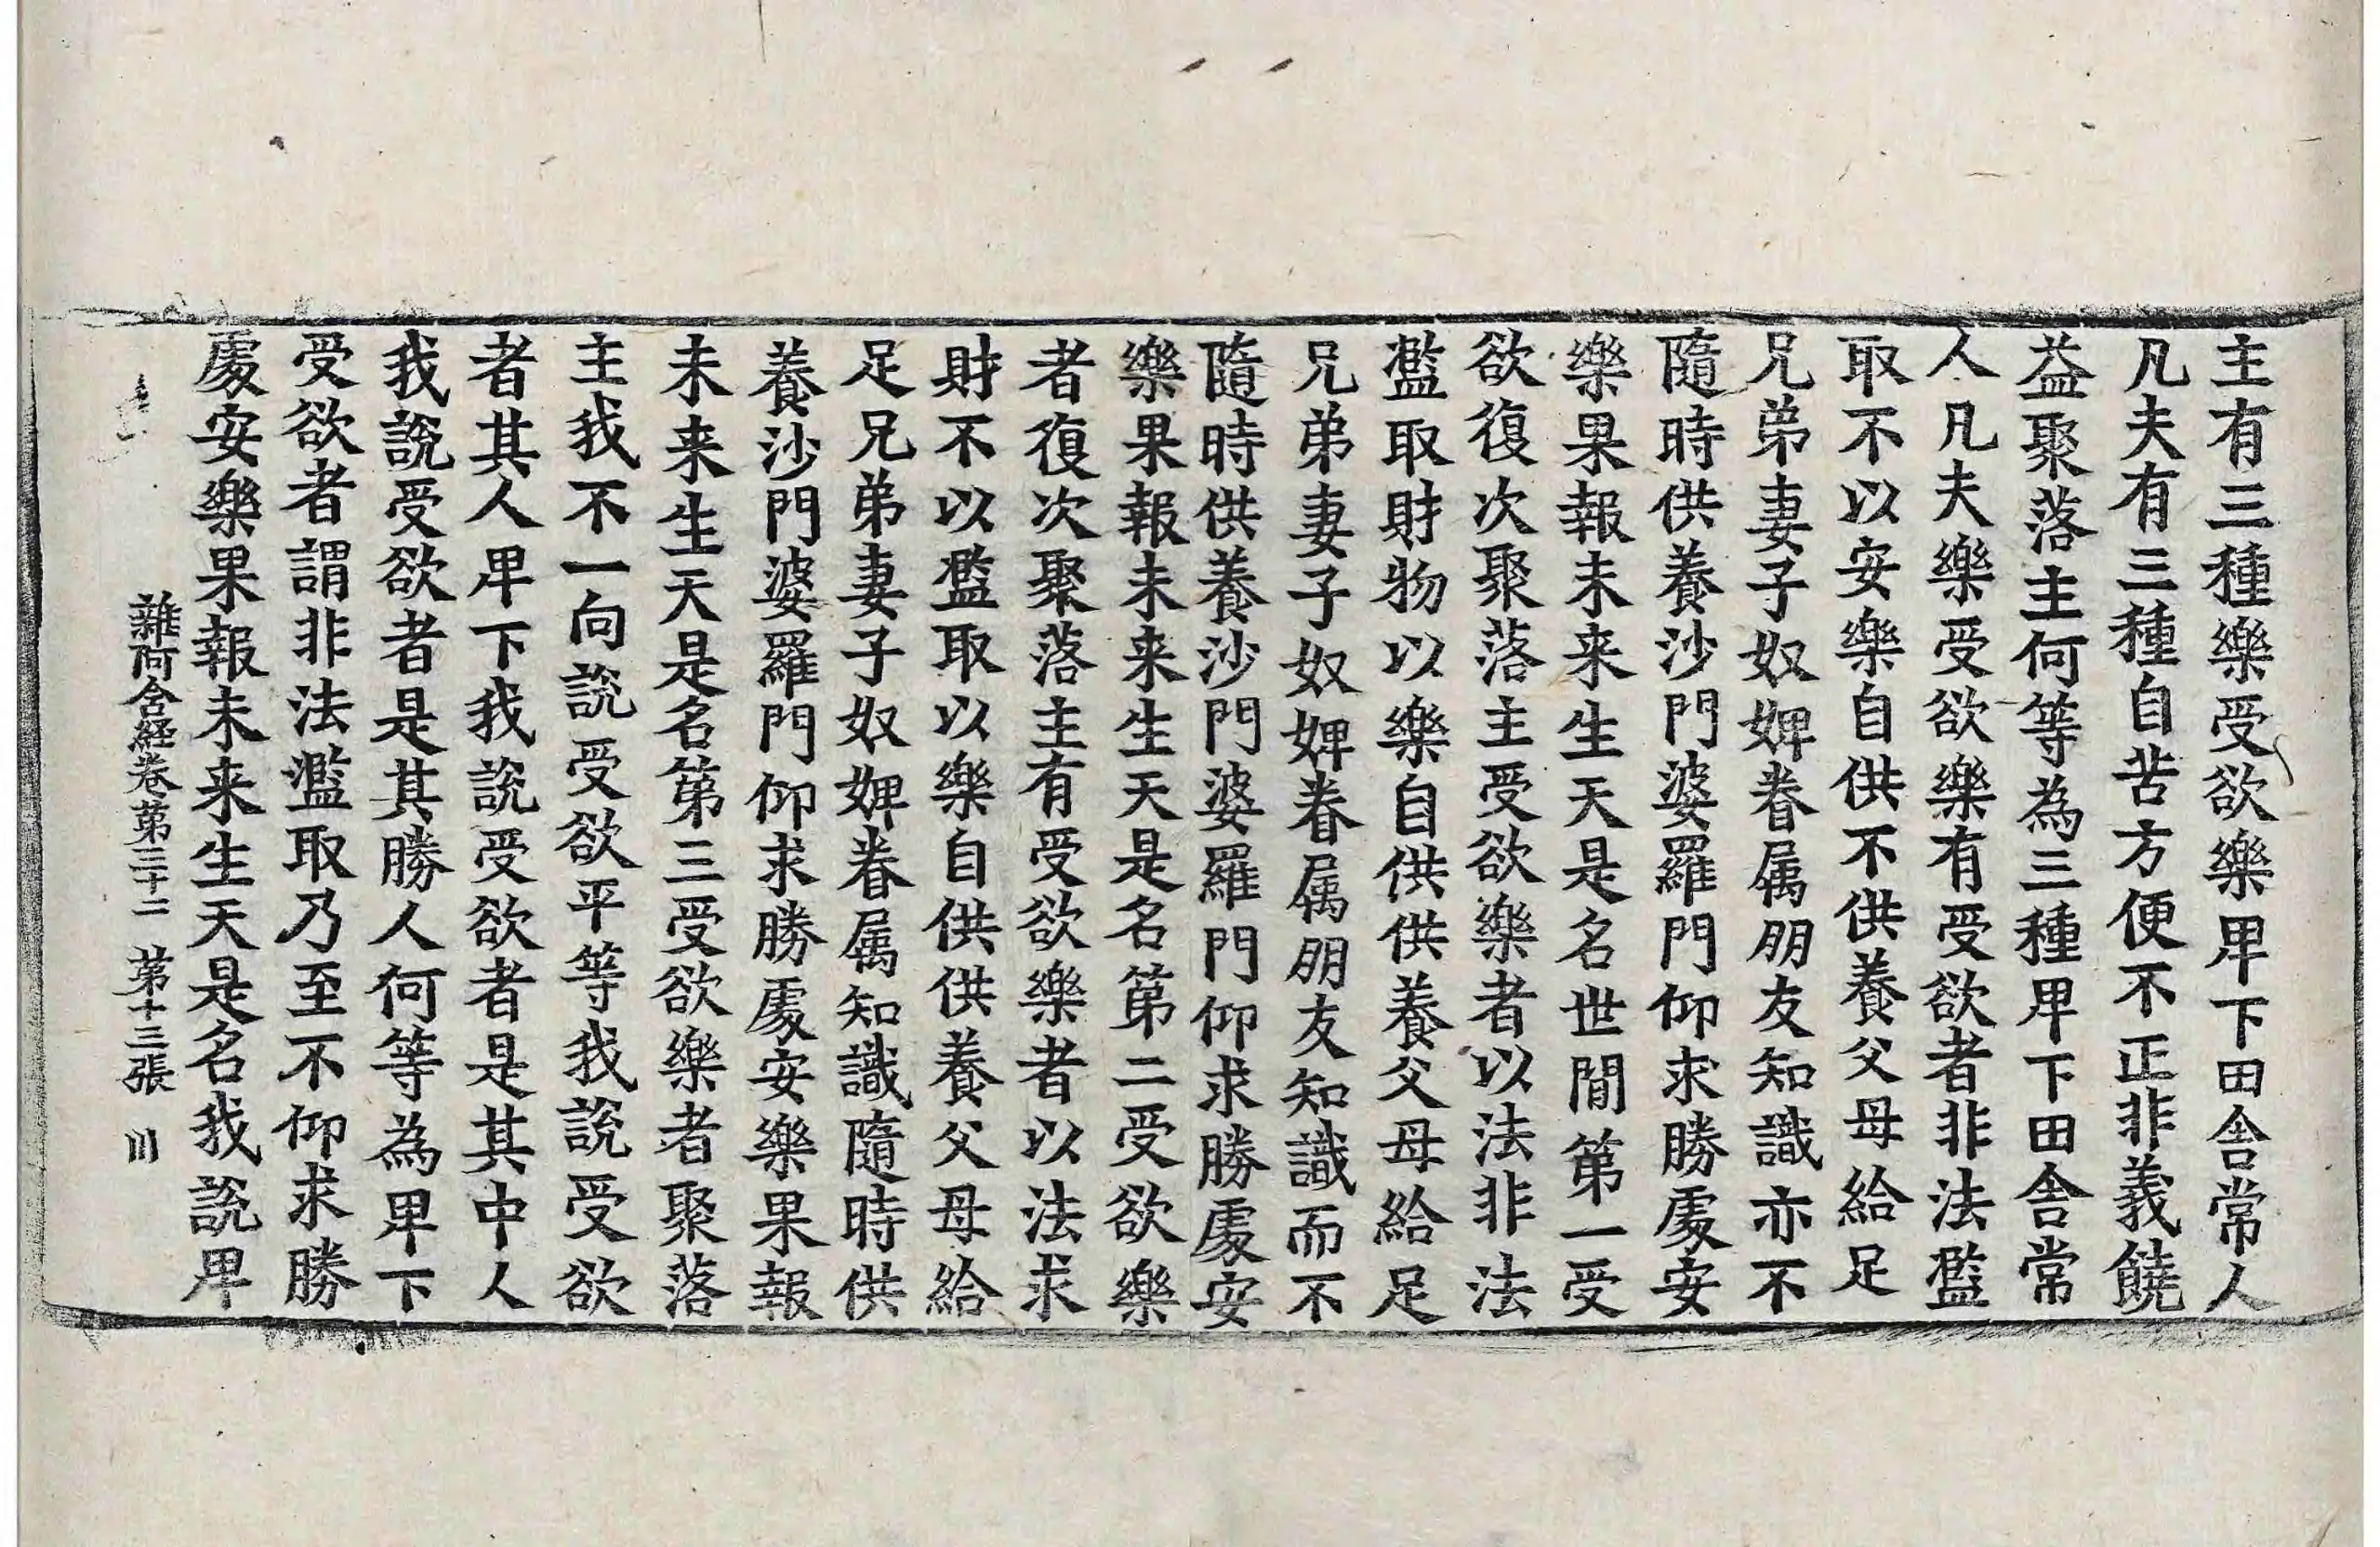 主有三種樂受欲樂卑下田舍常人
凡夫有三種自苦方便不正非義饒
益聚落主何等為三種卑下田舍常
人凡夫樂受欲樂有受欲者非法濫
取不以安樂自供不供養父母給足
兄弟妻子奴婢眷属朋友知識亦不
隨時供養沙門婆羅門仰求勝處安
樂果報未来生天是名世間第一受
欲復次聚落主受欲樂者以法非法
濫取財物以樂自供供養父母給足
兄弟妻子奴婢眷属朋友知識而不
隨時供養沙門婆羅門仰求勝處安
樂果報未来生天是名第二受欲樂
者復次聚落主有受欲樂者以法求
財不以濫取以樂自供供養父母給
足兄弟妻子奴婢眷属知識隨時供
養沙門婆羅門仰求勝處安樂果報
未来生天是名第三受欲樂者聚落
主我不一向說受欲平等我說受欲
者其人卑下我說受欲者是其中人
我說受欲者是其勝人何等為卑下
受欲者謂非法濫取乃至不仰求勝
處安樂果報未来生天是名我說卑
雜阿含経卷第三十二 第十三張 川